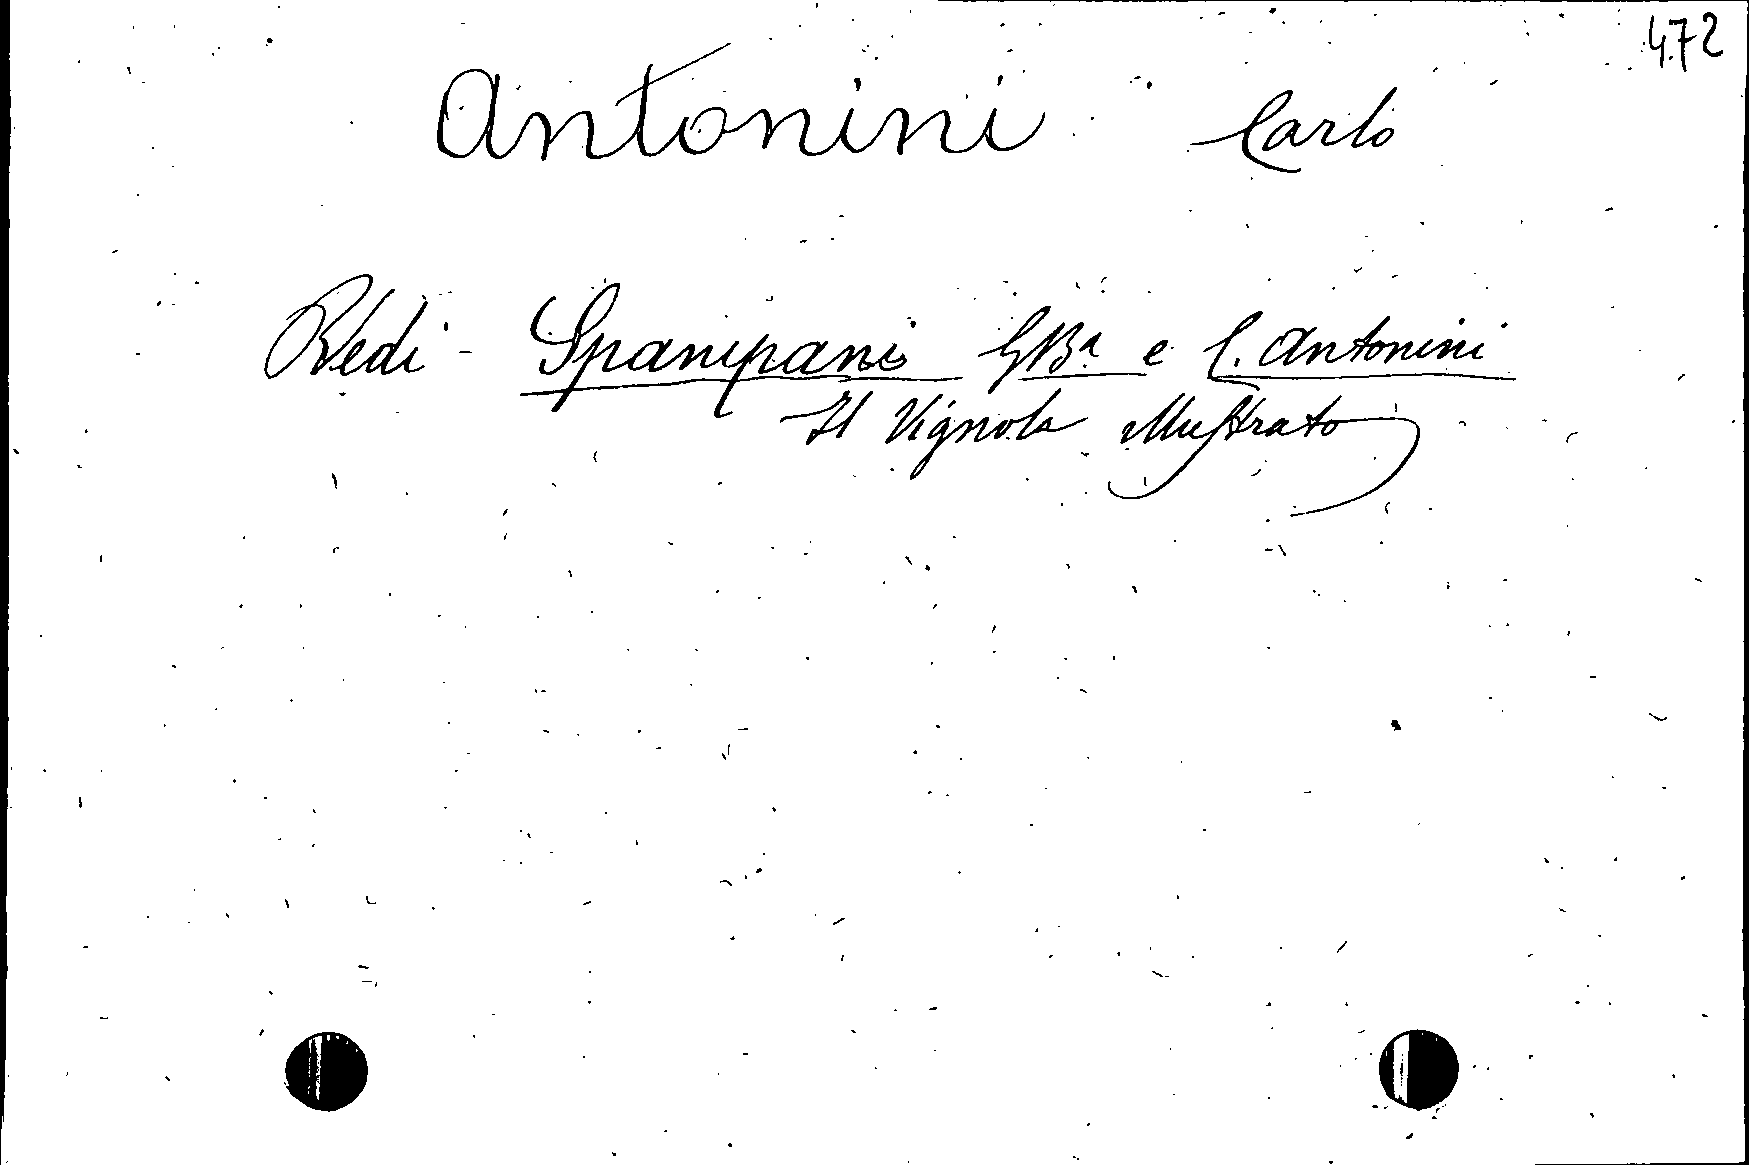 472
Antonini Carlo
Vedi - Spampani GBa e C. Antonini
Il Vignola illustrato